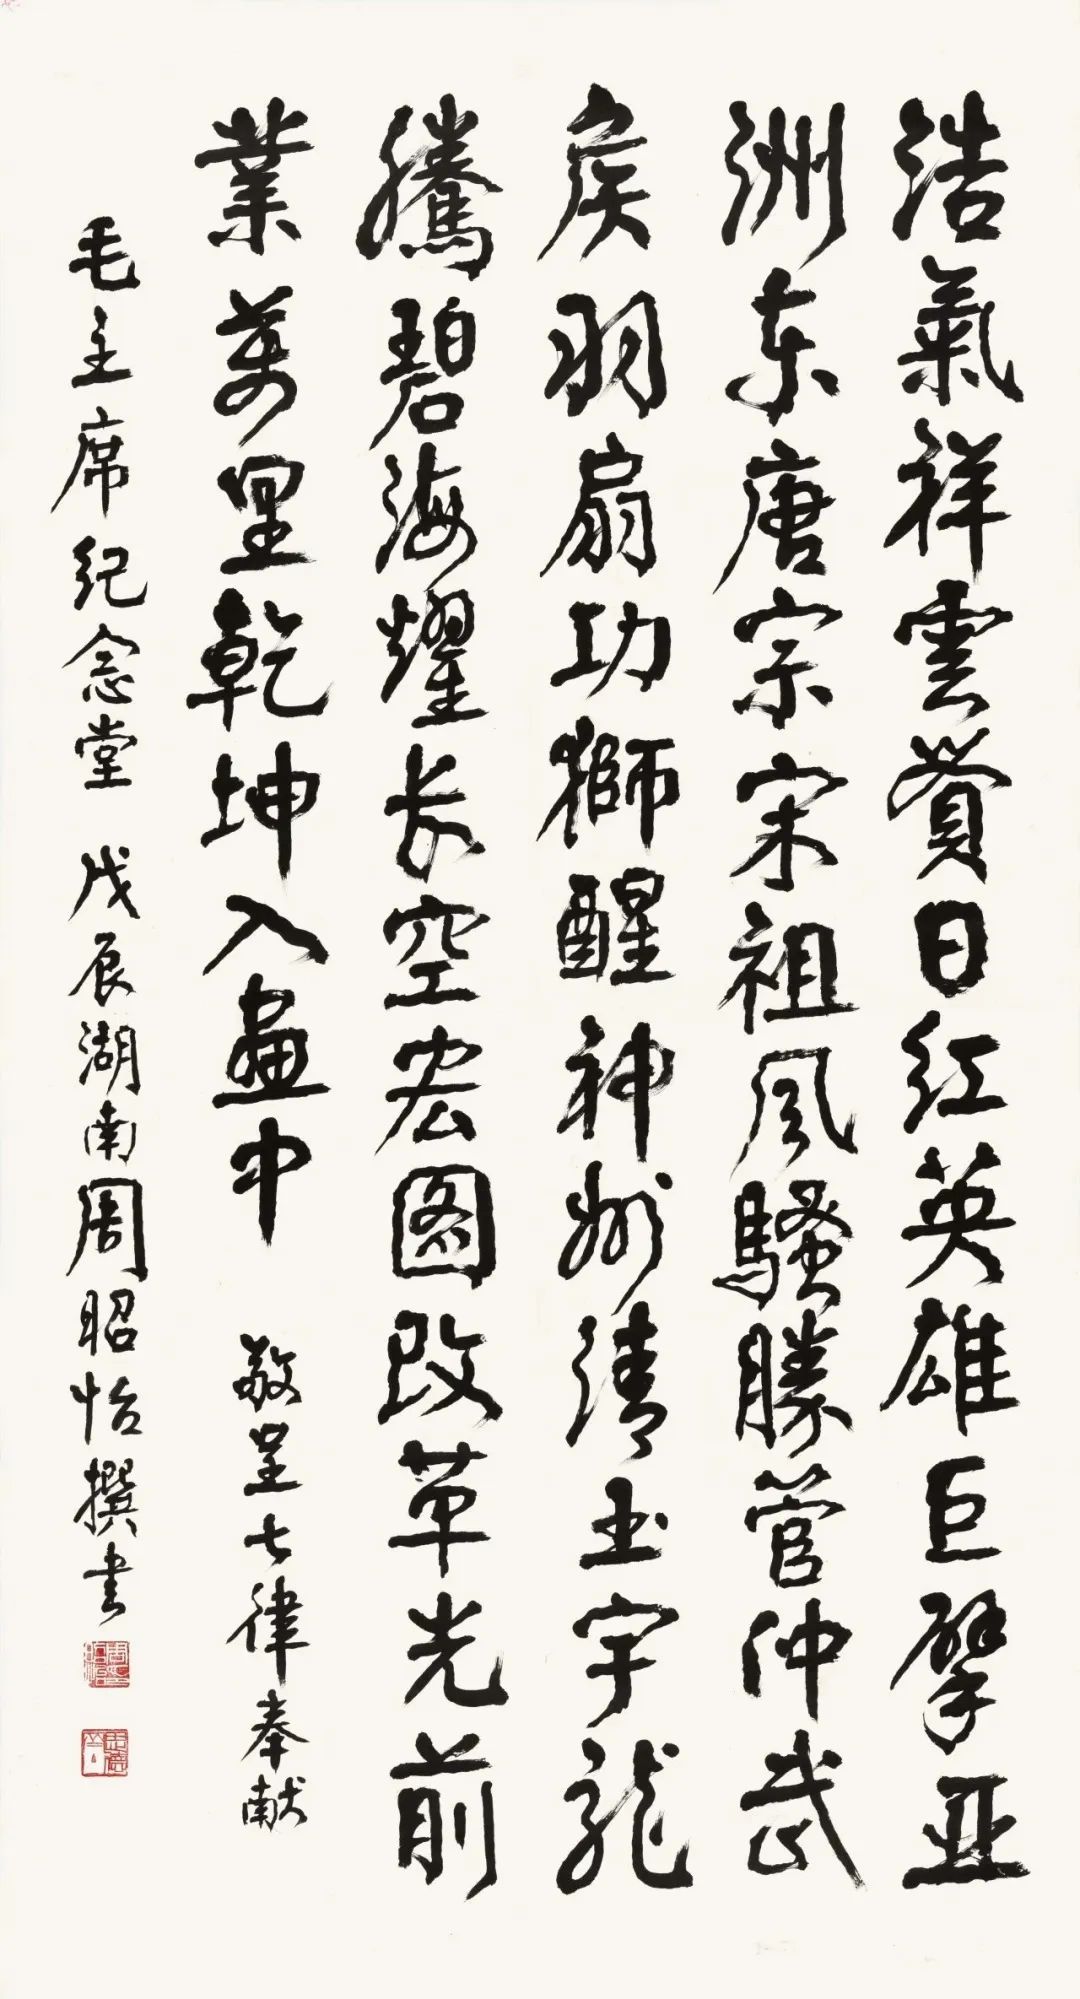 浩氣祥雲賛日紅英雄巨擘亞
洲东唐宗宋祖风騷勝管仲武
侯羽扇功獅醒神州清玉宇龙
騰碧海耀长空宏图改革光前
業萬里乾坤入畫中 敬呈七律奉献
毛主席纪念堂 戊辰湖南周昭怡撰书